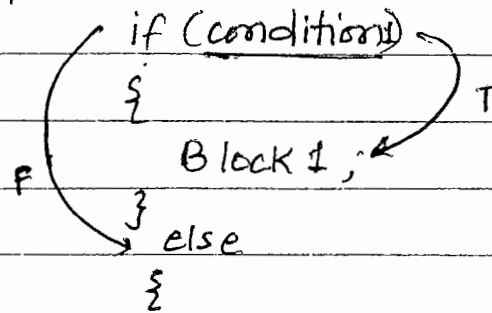 if (condition1)
{
T
Block 1;
F
}
else
{